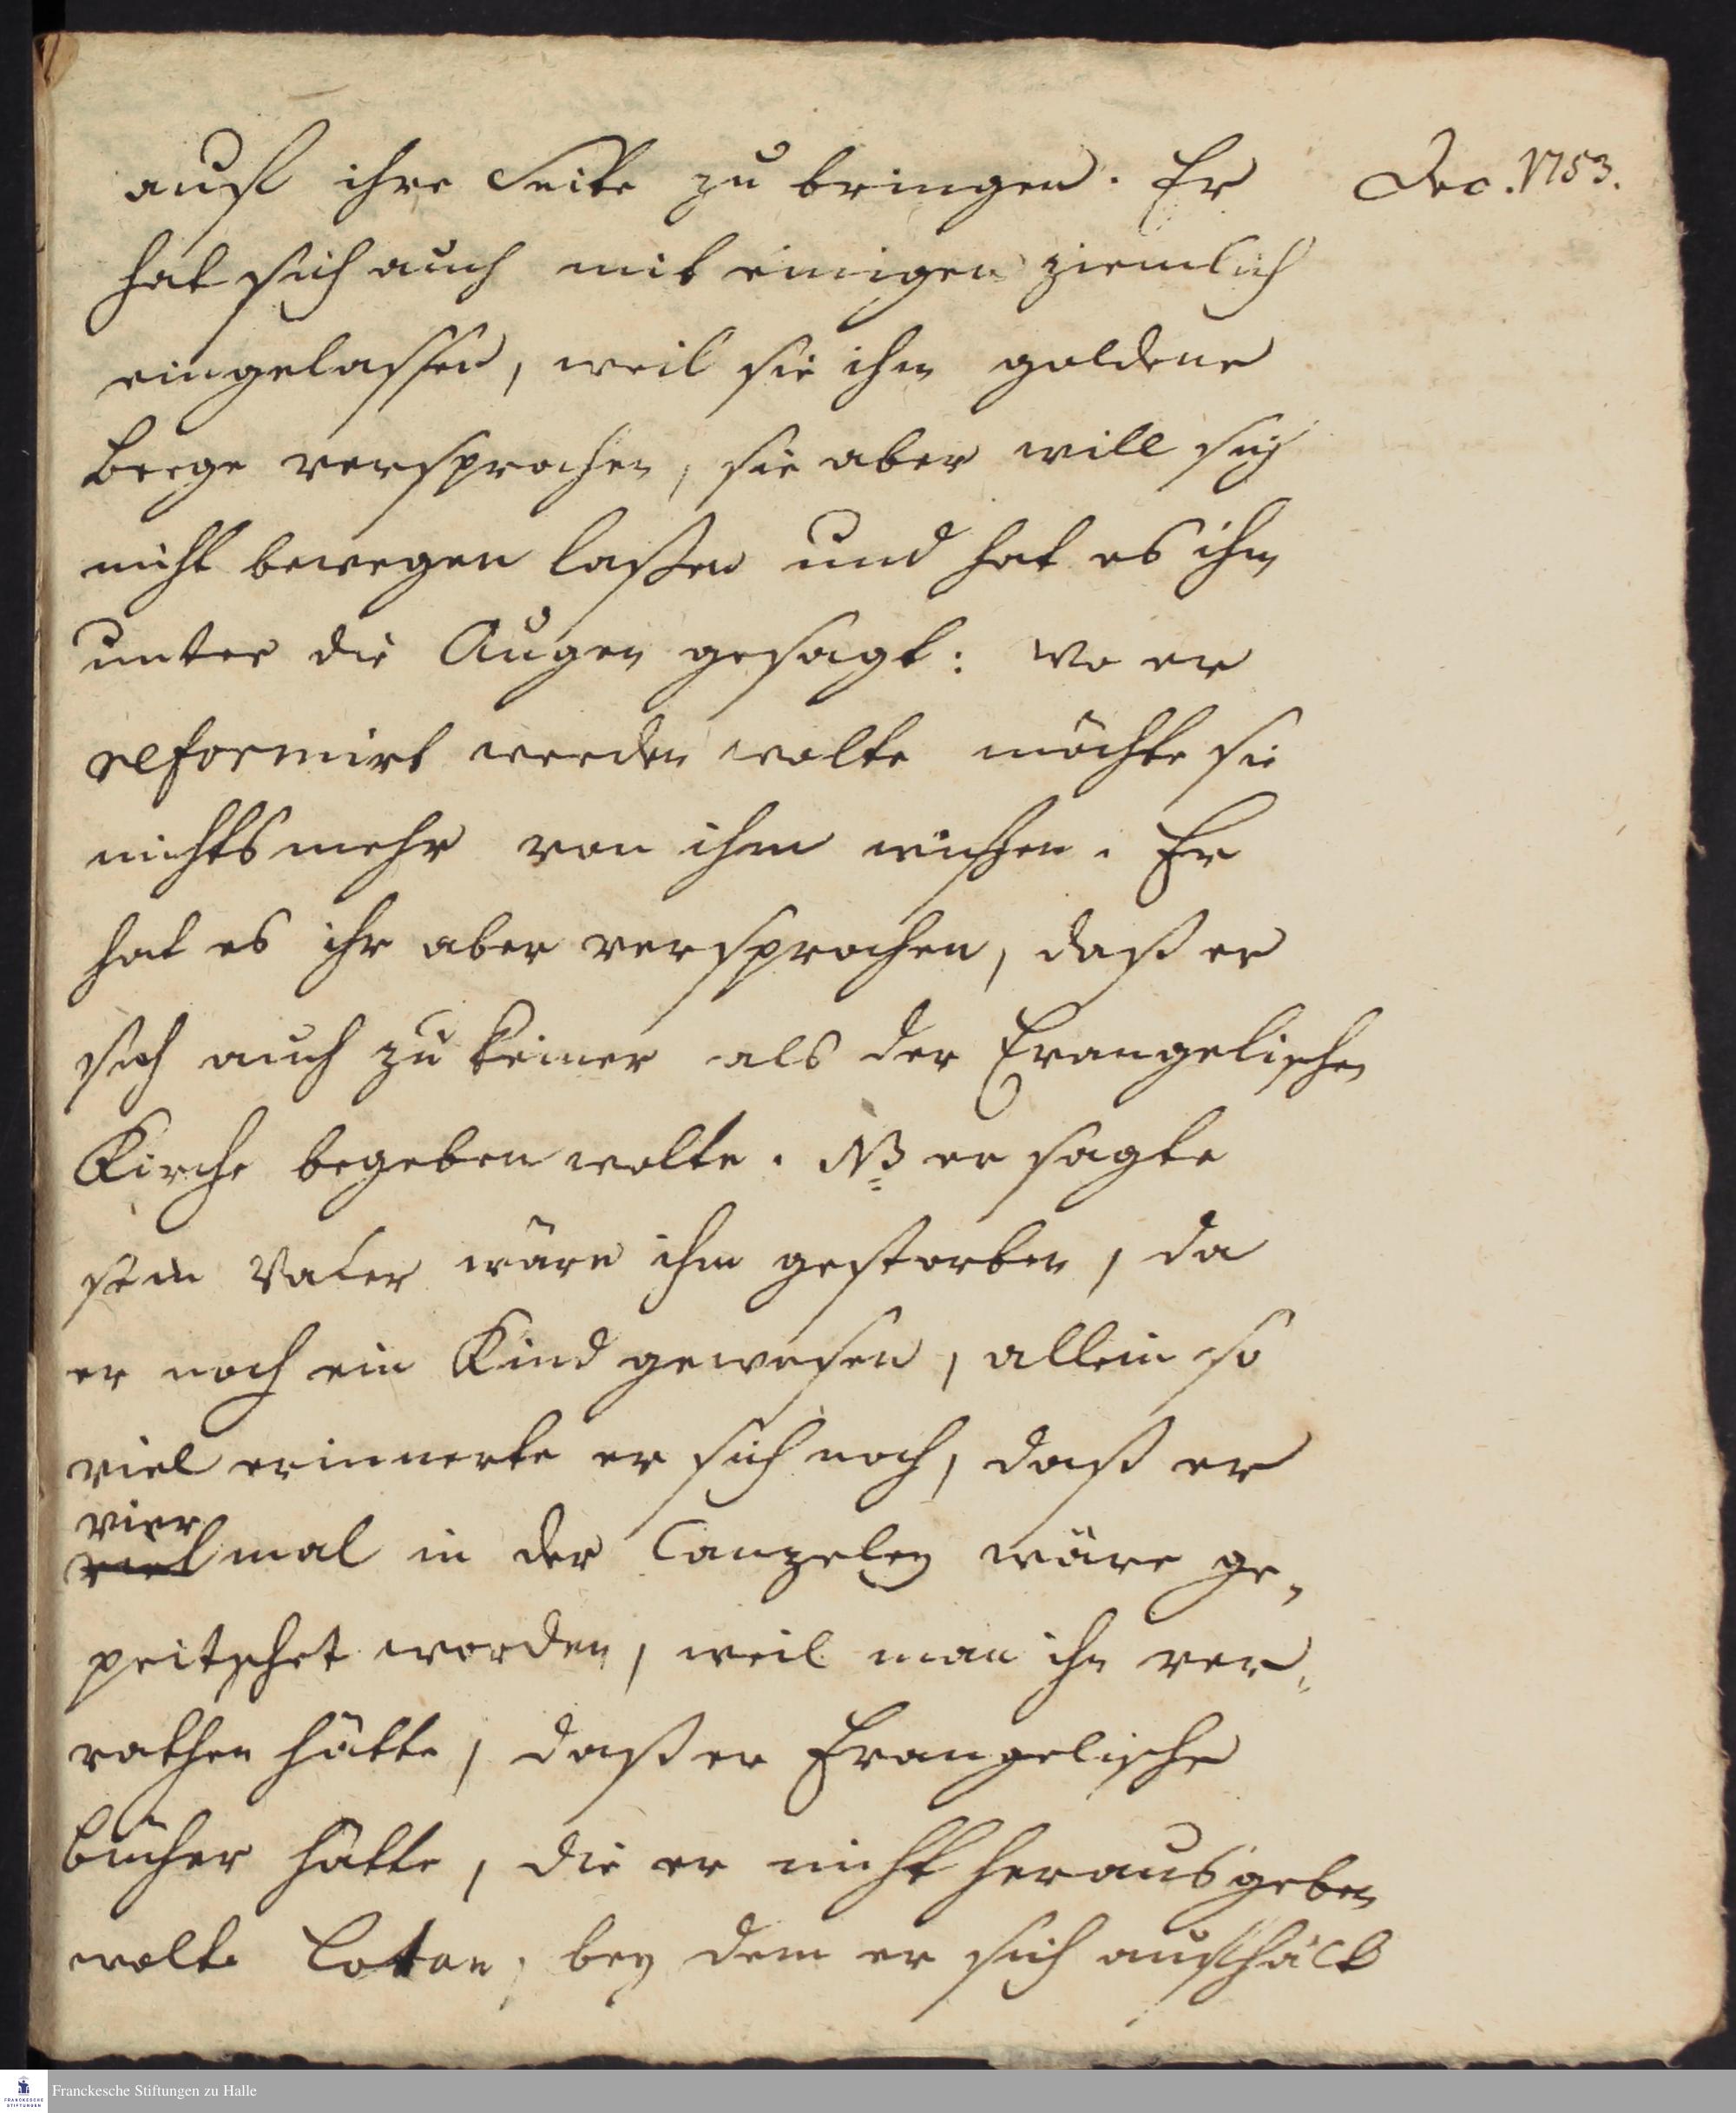 Dec. 1753.
auf ihre Seite zu bringen. Er
hat sich auch mit einigen ziemlich
eingelassen, weil sie ihm goldene
Berge versprochen, sie aber will sich
nicht bewegen laßen und hat es ihm
unter die Augen gesagt: wo er
reformirt werden wolte möchte sie
nichts mehr von ihm wißen. Er
hat es ihr aber versprochen, daß er
sich auch zu keiner als der Evangelischen
Kirche begeben wolte. NB er sagte
sein Vater wäre ihm gestorben, da
er noch ein Kind gewesen, allein so
viel erinnerte er sich noch, daß er
vier
viel mal in der Canzeley wäre ge-
peitschet worden, weil man ihn ver-
rathen hätte, daß er Evangelische
Bücher hätte, die er nicht herausgeben
wolte bey dem er sich aufhält
Franckesche Stiftungen zu Halle
FRANCKESCHE
STIFTUNGEN